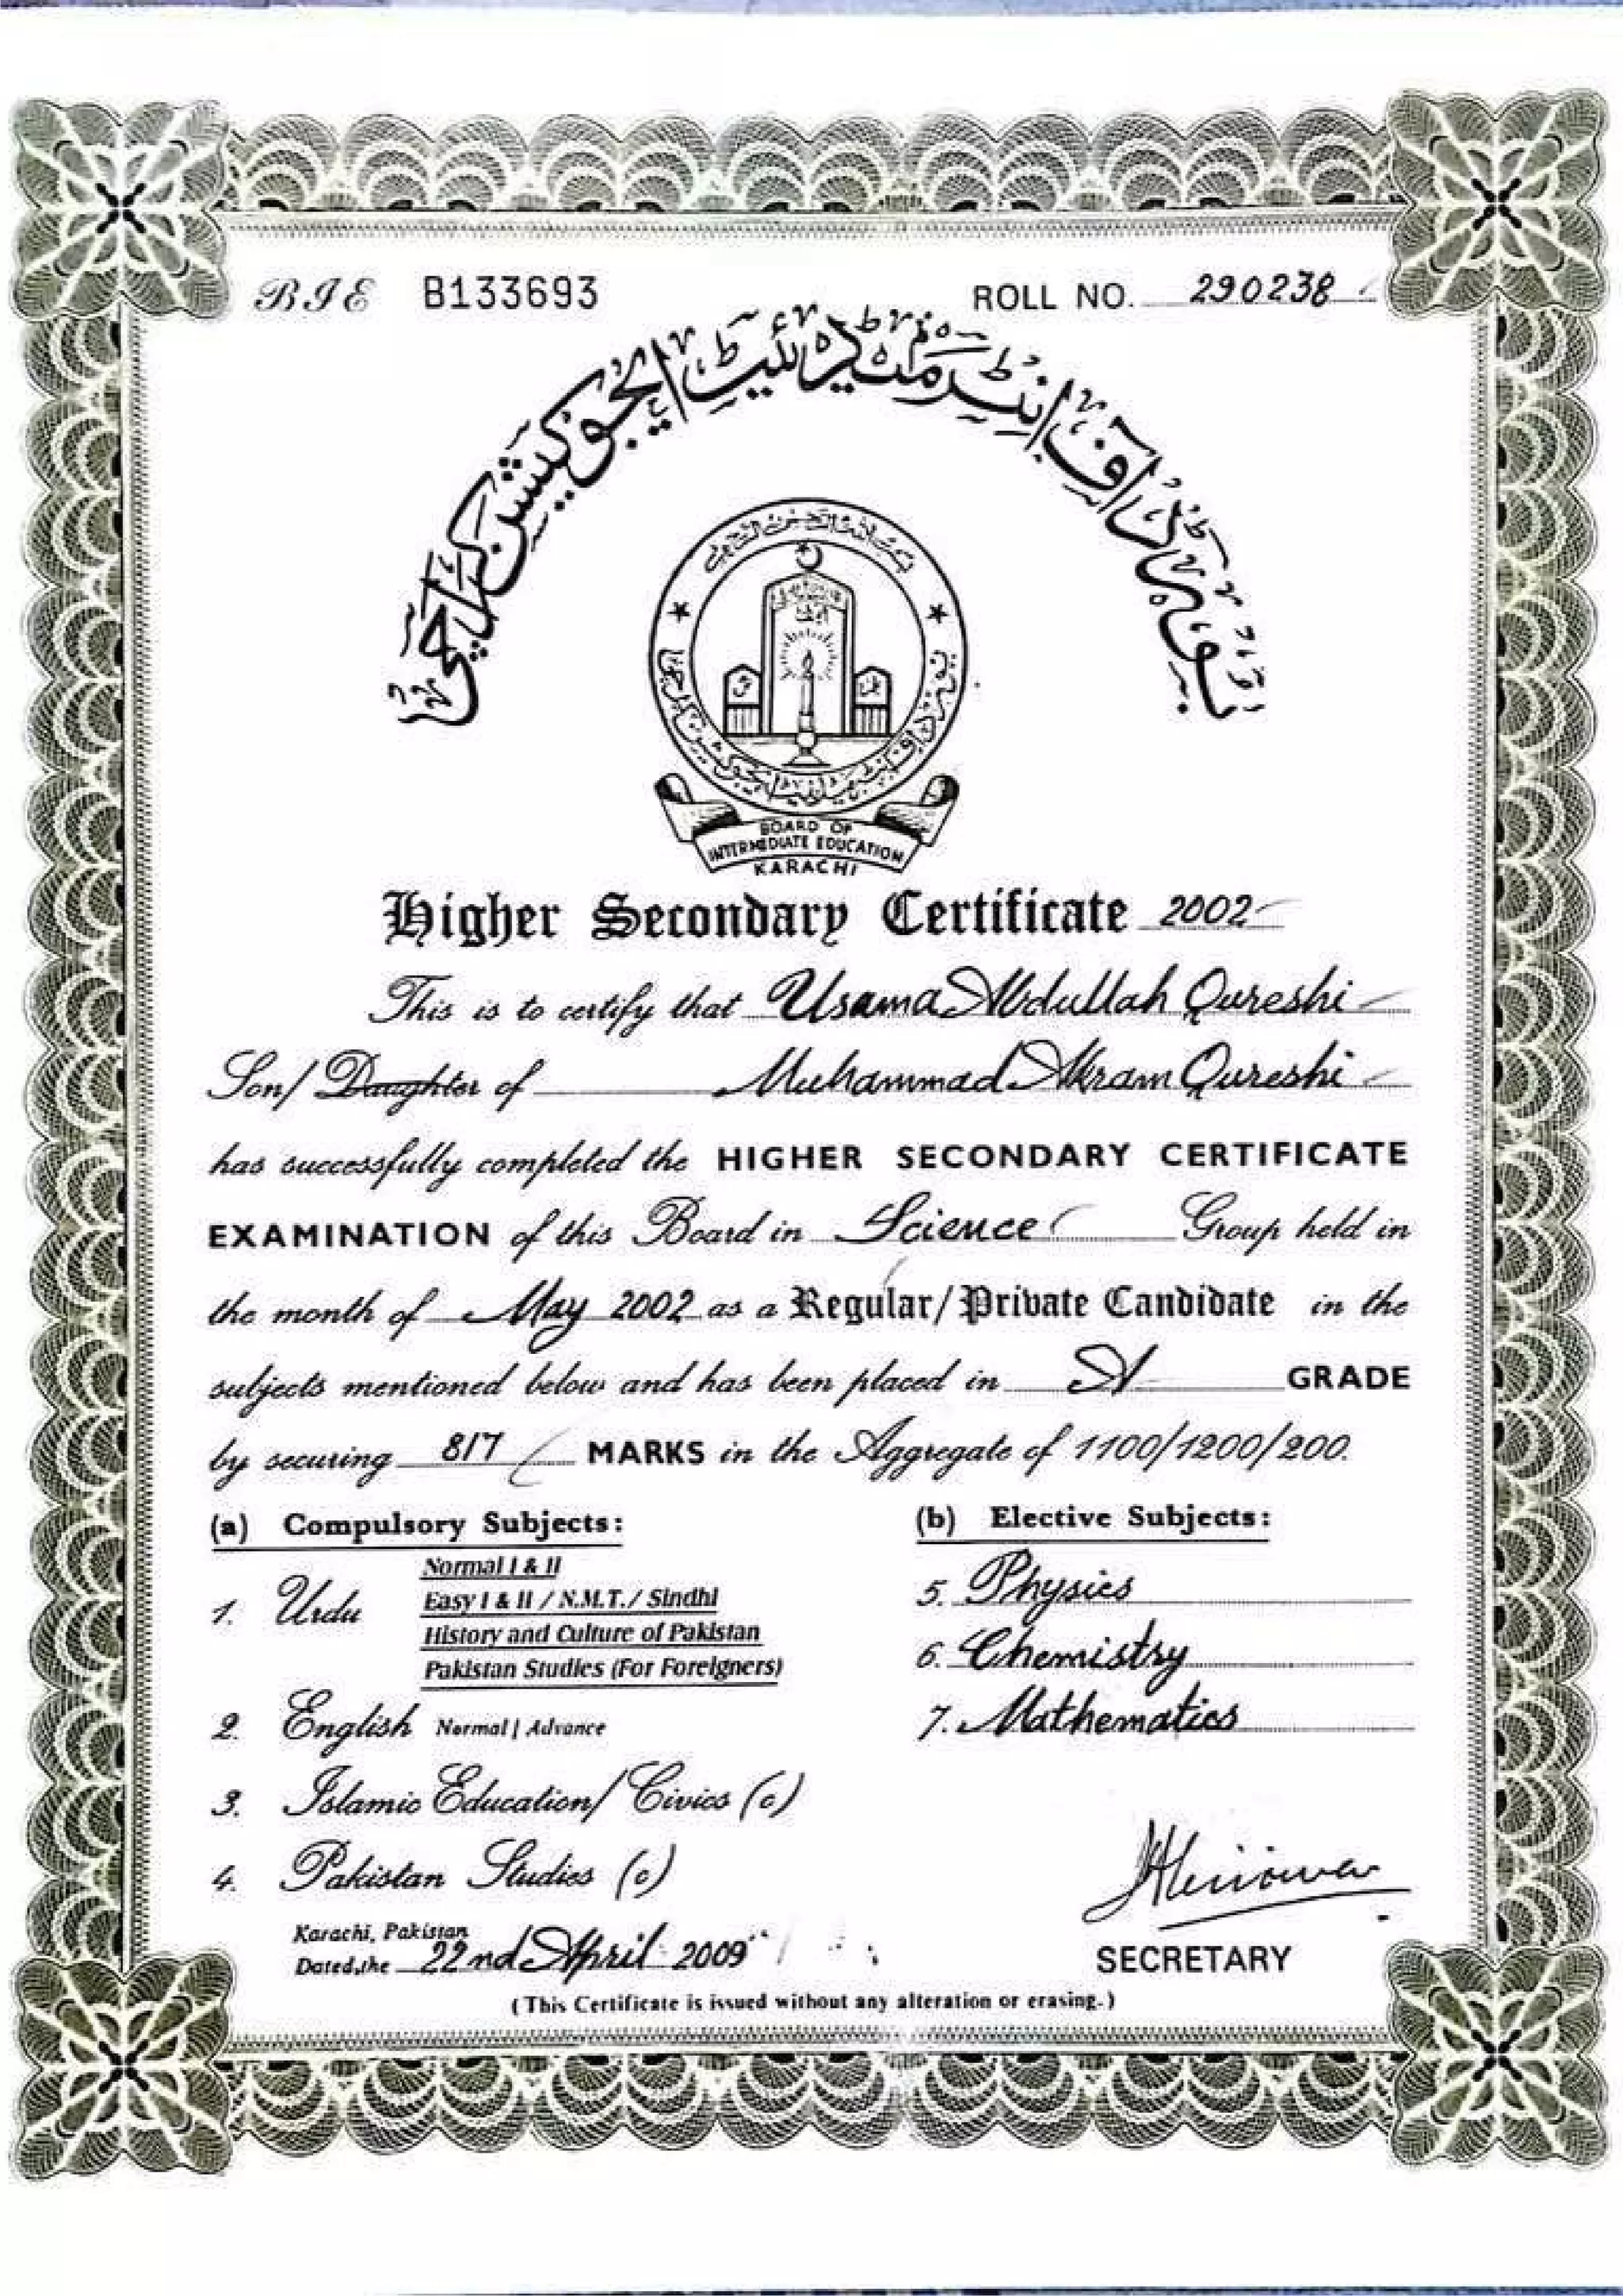 BIE B133693 ROLL NO. 290238
بورڈ آف انٹرمیڈیئیٹ ایجوکیشن کراچی
BOARD OF
INTERMEDIATE EDUCATION
KARACHI
Higher Secondary Certificate 2002
This is to certify that Usama Abdullah Qureshi
Son/ Daughter of Muhammad Akram Qureshi
has successfully completed the HIGHER SECONDARY CERTIFICATE
EXAMINATION of this Board in Science Group held in
the month of May 2002 as a Regular/Private Candidate in the
subjects mentioned below and has been placed in A GRADE
by securing 817 MARKS in the Aggregate of 1100/1200/200.
(a) Compulsory Subjects:
1. Urdu
Normal I & II
Easy I & II / N.M.T./ Sindhi
History and Culture of Pakistan
Pakistan Studies (For Foreigners)
2. English Normal / Advance
3. Islamic Education/ Civics (c)
4. Pakistan Studies (c)
(b) Elective Subjects:
5. Physics
6. Chemistry
7. Mathematics
Karachi, Pakistan
Dated,the 22nd April 2009
SECRETARY
(This Certificate is issued without any alteration or erasing.)